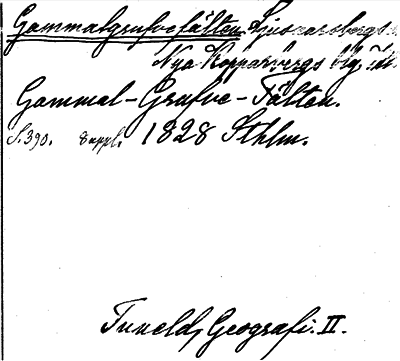 Gammalgrufvefälten Ljusnarsbergs s.
Nya Kopparbergs blg. T.
Gammal-Grufve-Fälten.
S. 390. Suppl. 1828 Sthlm.
Tuneld, Geografi. II.